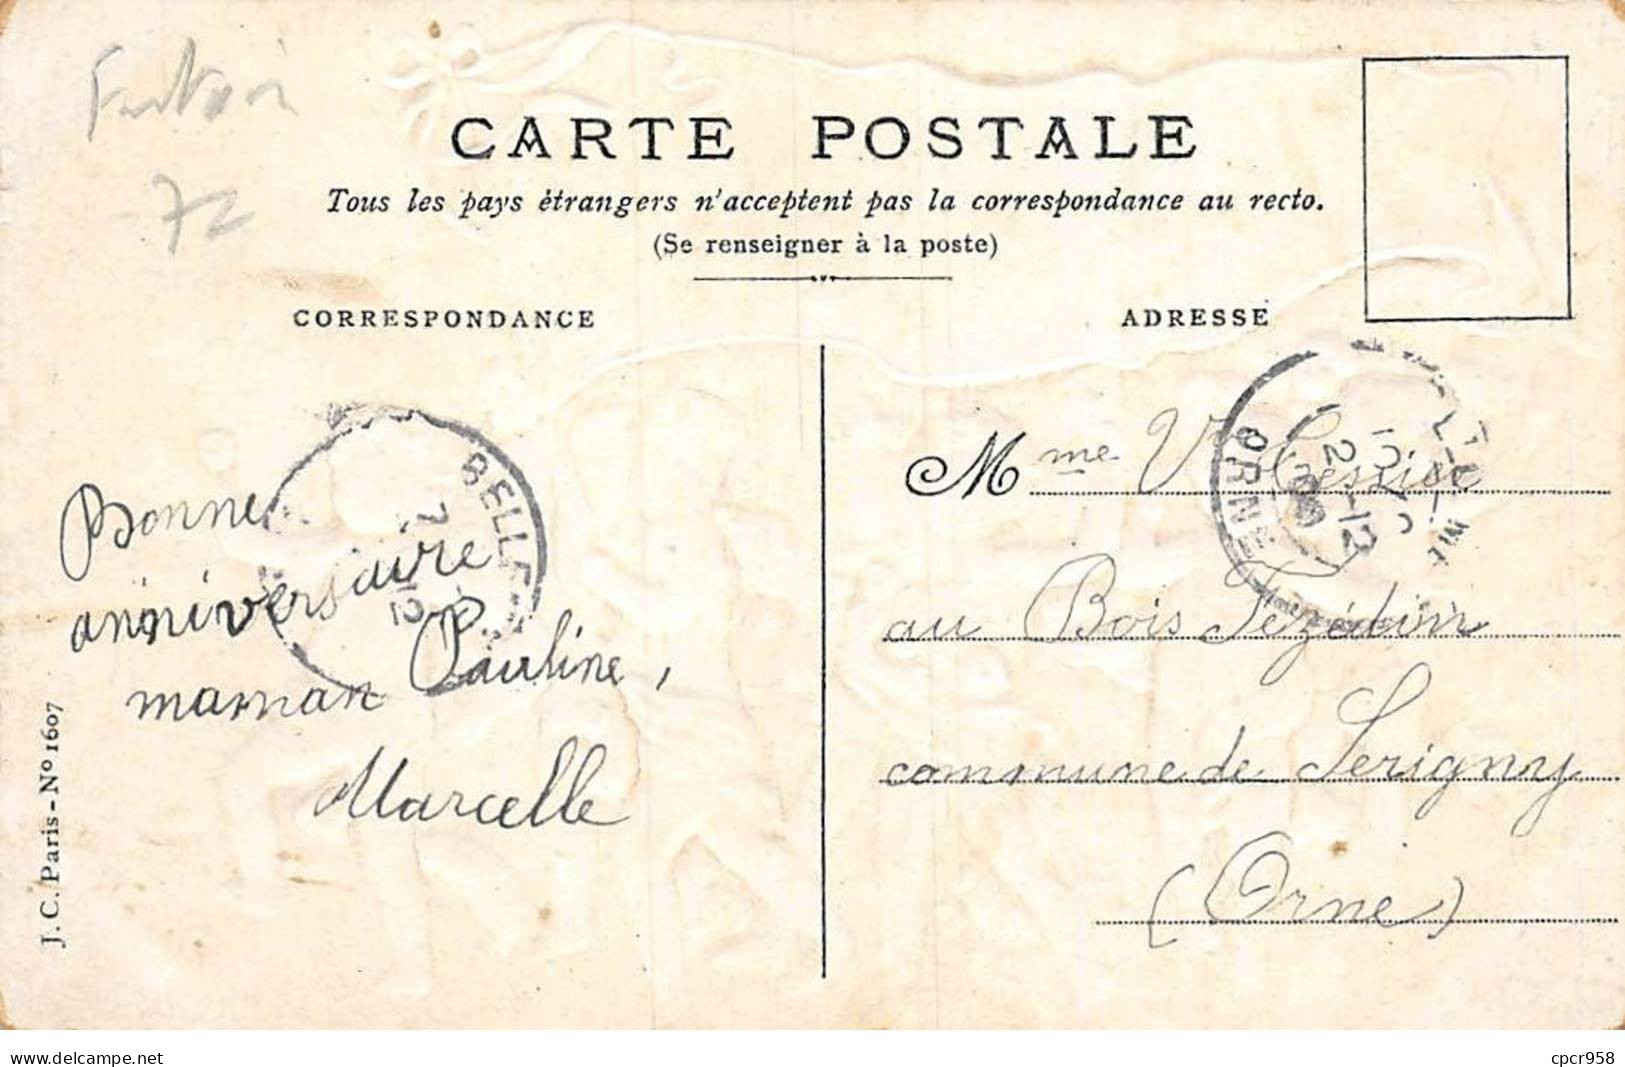 72
CARTE POSTALE
Tous les pays étrangers n'acceptent pas la correspondance au recto.
(Se renseigner à la poste)
CORRESPONDANCE
ADRESSE
Bonne
anniversaire
maman Pauline,
Marcelle
Mme Ve
au Bois
commune de Serigny
(Orne)
BELLE
ORNE
J. C. Paris - No 1607
www.delcampe.net
cpcr958